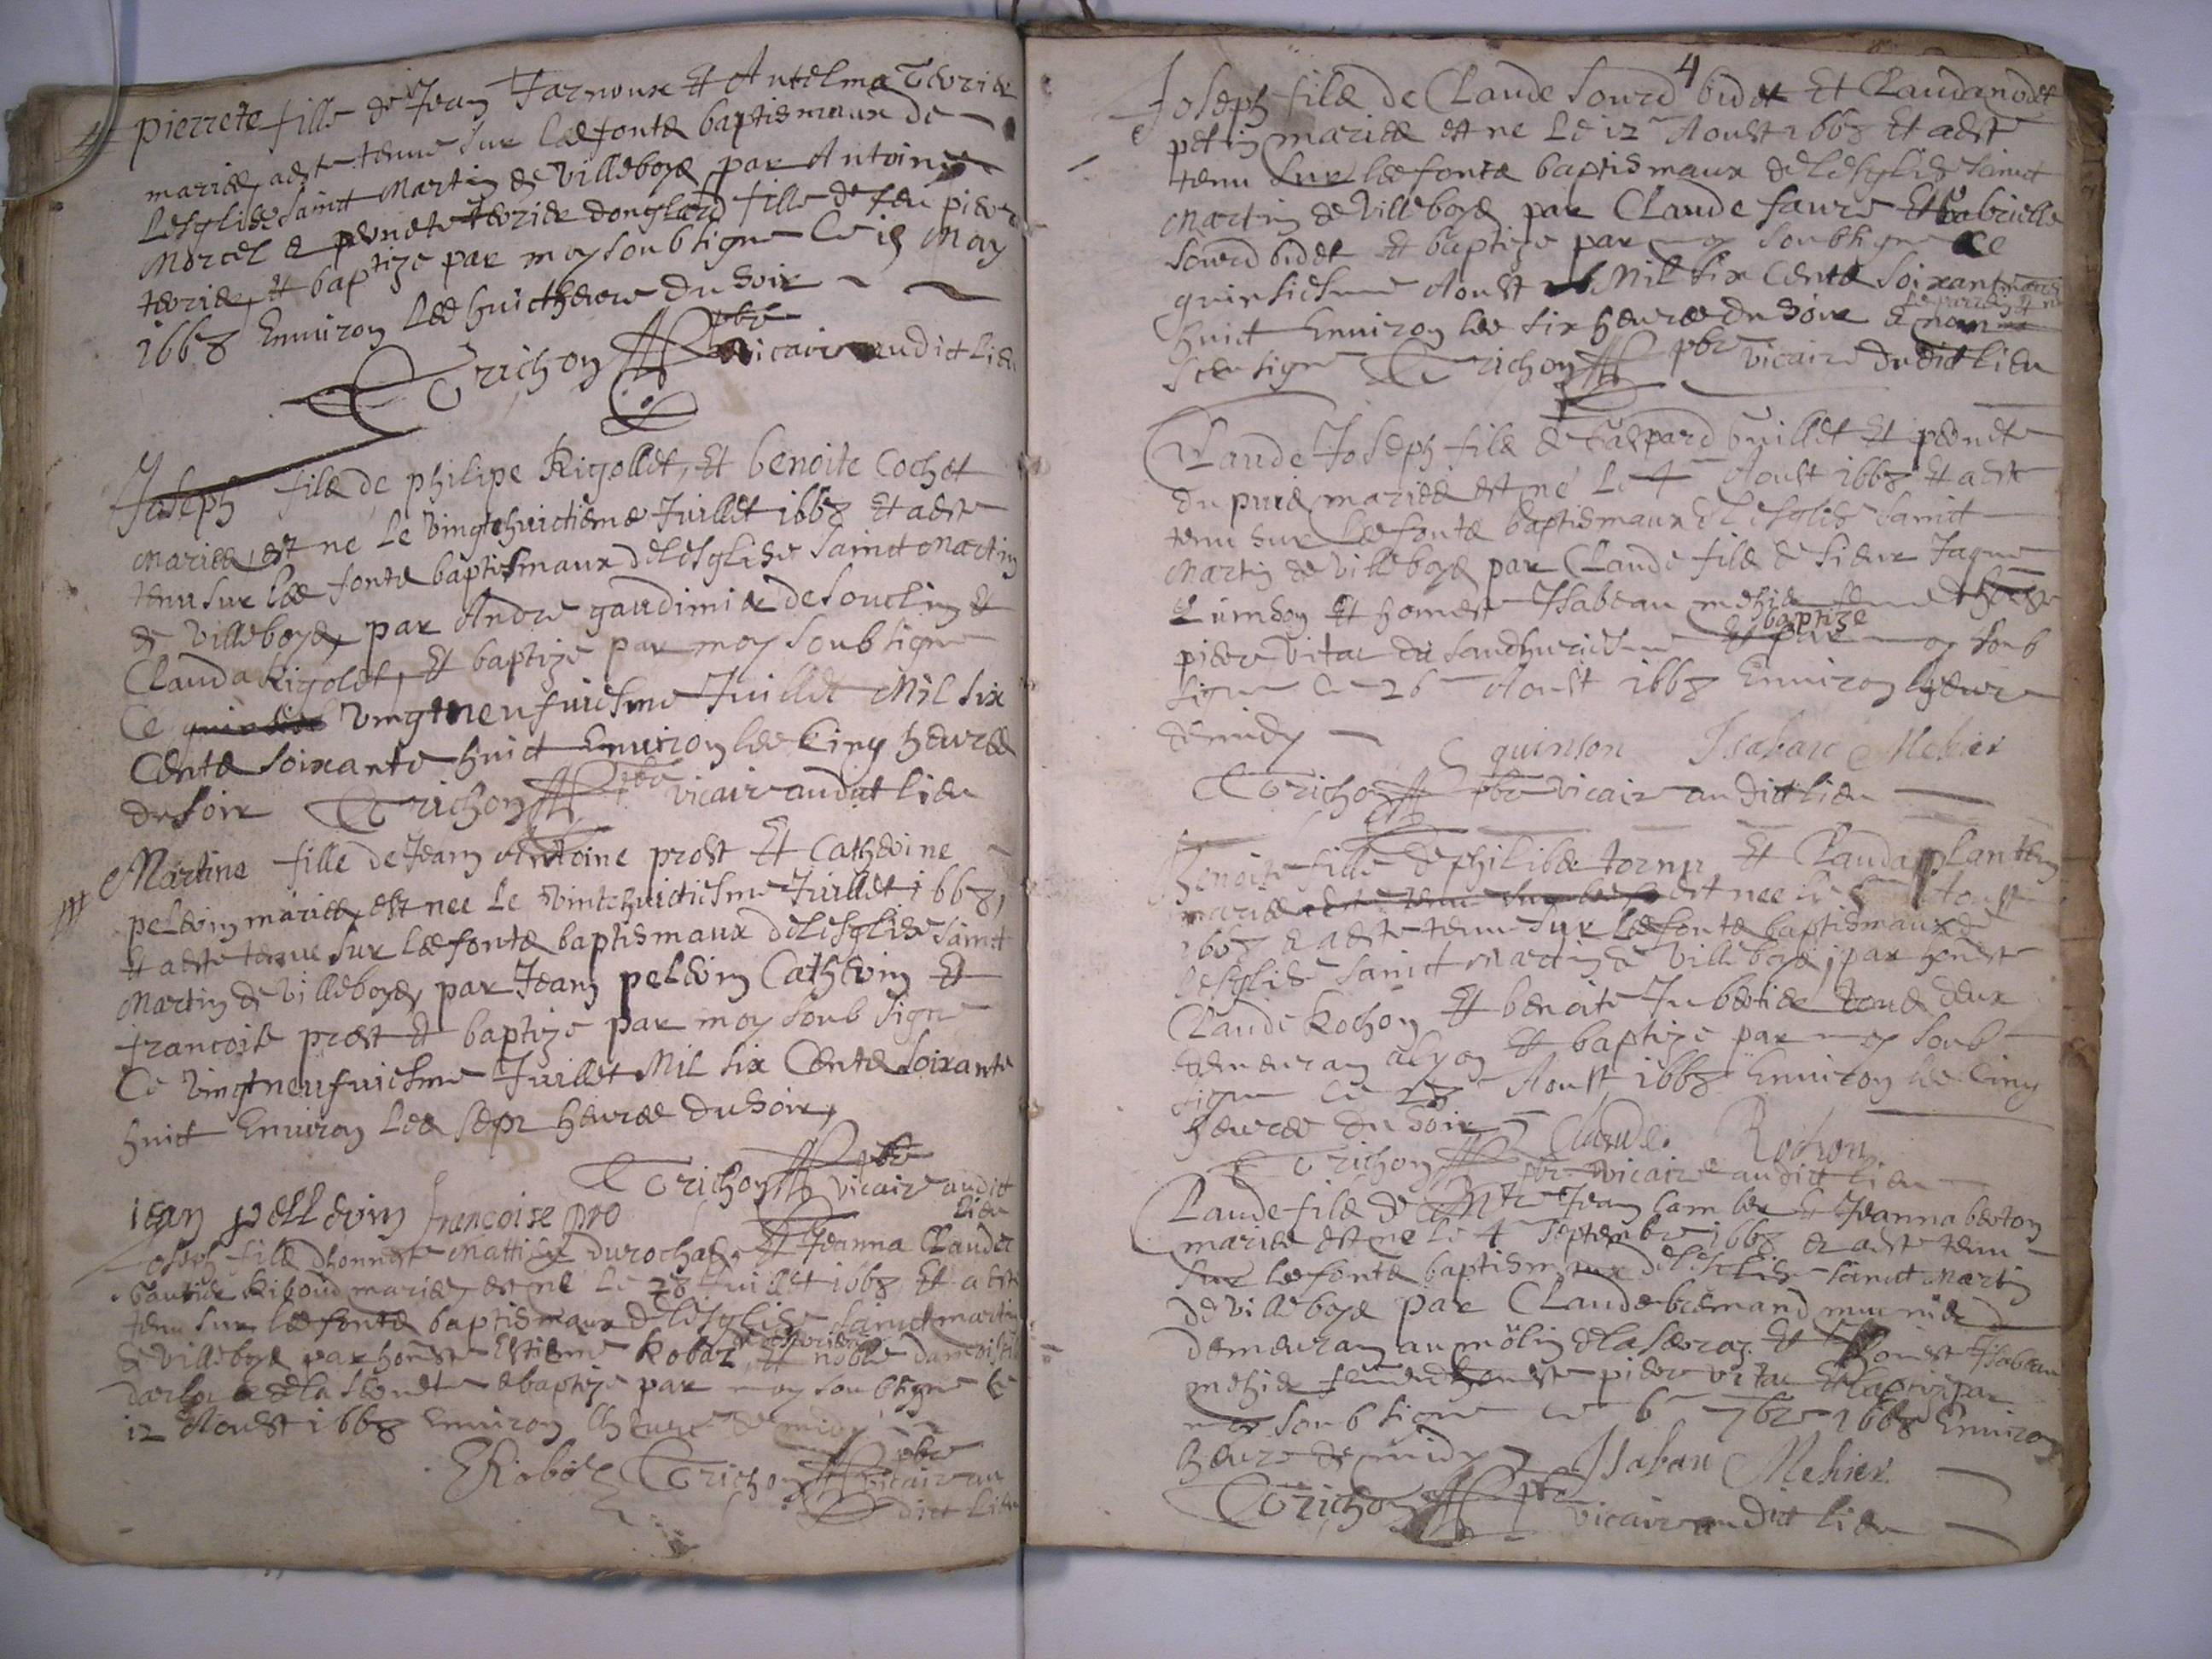 pierrete fille de Jean Farnoux Et Antelma Tevrier
mariés, a este tenue sur les fonts baptismaux de
Lesglise sainct Martin de Villeboys par Antoine
Morcel & pernete tevrier donglard fille de feu pierre
tevrier, et baptizé par moy soubsigne ce 15 May
1668 Environ Les huict heures du soir
Trichon pbre vicaire audict lieu
Joseph fils de philipe Rigollet, Et benoite Cochet
Mariés, est ne Le vingthuictieme Juillet 1668 Et a este
tenu sur les fonts baptismaux de lesglise sainct Martin
de Villeboys, par Andre gaudimier de soucling et
Clauda Rigolet, Et baptizé par moy soubsigne
Ce vingtneufviesme Juillet Mil six
Cents soixante huict Environ les cinq heures
du soir Trichon pbre vicaire audict lieu
Martine fille de Jean Antoine prost Et Catherine
pelevin mariés, est nee Le vinthuictiesme Juillet 1668,
Et a este tenue sur les fonts baptismaux de lesglise sainct
Martin de Villeboys, par Jean pelevin Cathevin Et
francoise prost et baptizé par moy soub signe
Ce vingtneufviesme Juillet Mil six Cents soixante
huict Environ Les sept heures du soir,
Trichon pbre vicaire audict
lieu
iean pellevin francoise pro
Joseph fils dhonneste Mattieu durochat Et Jeanna Clauda
Riboud mariés, est né Le 28 Juillet 1668 Et a este
tenu sur les fonts baptismaux de lesglise sainct martin
de villeboys par honeste Estienne Robaz et noble damoiselle
& baptizé par moy soubsigne ce
12 Aoust 1668 Environ lheure de midy
ERobaz Trichon pbre vicaire au
dict lieu
4
Joseph fils de Claude sourd bidet Et Clauda nodet
petin mariés est ne Le 12 Aoust 1668 Et a este
tenu sur les fonts baptismaux de lesglise sainct
Martin de Villeboys par Claude faure Et Gabrielle
sourd bidet et baptizé par moy soubsigne Ce
quinsiesme Aoust Mil six Cents soixante
huict Environ les six heures du soir & nom
sceu signe Trichon pbre vicaire dudict lieu
Claude Joseph fils de Gaspard Guillet Et pernete
du puis mariés est né Le 4 Aoust 1668 et a este
tenu sur les fonts baptismaux de lesglise sainct
Martin de Villeboys par Claude fils de sieur Jaque
Quinson Et honeste Isabeau mehier
baptize
pierre vitac par moy soub
signe ce 26 Aoust 1668 Environ lheure
de midy
C quinson Isabau Mehier
Trichon pbre vicaire audict lieu
Benoite fille de philibe tornu Et Clauda planten
mariés est nee le Aoust
1668 & a este tenue sur les fonts baptismaux de
lesglise sainct Martin de Villeboys, par honeste
Claude Rochon Et benoite Jubertier tous deux
demeuran a lyon Et baptizé par moy soub
signe ce 28 Aoust 1668 Environ les cinq
heures du soir
Claude Rochon
Trichon pbre vicaire audict lieu
Claude fils de Mre Jean lamber Et Jeanna berton
mariés est ne le 4 septembre 1668 & a este tenu
sur les fonts baptismaux de lesglise sainct Martin
de villeboys par Claude bremand munier
demeuran au molin de la serraz Et honest Isabeau
mehier femme dhoneste pierre vitac Et baptizé par
moy soub signe ce 6 7bre 1668 Environ
heure de midy Isabau Mehier
Trichon pbre vicaire audict lieu